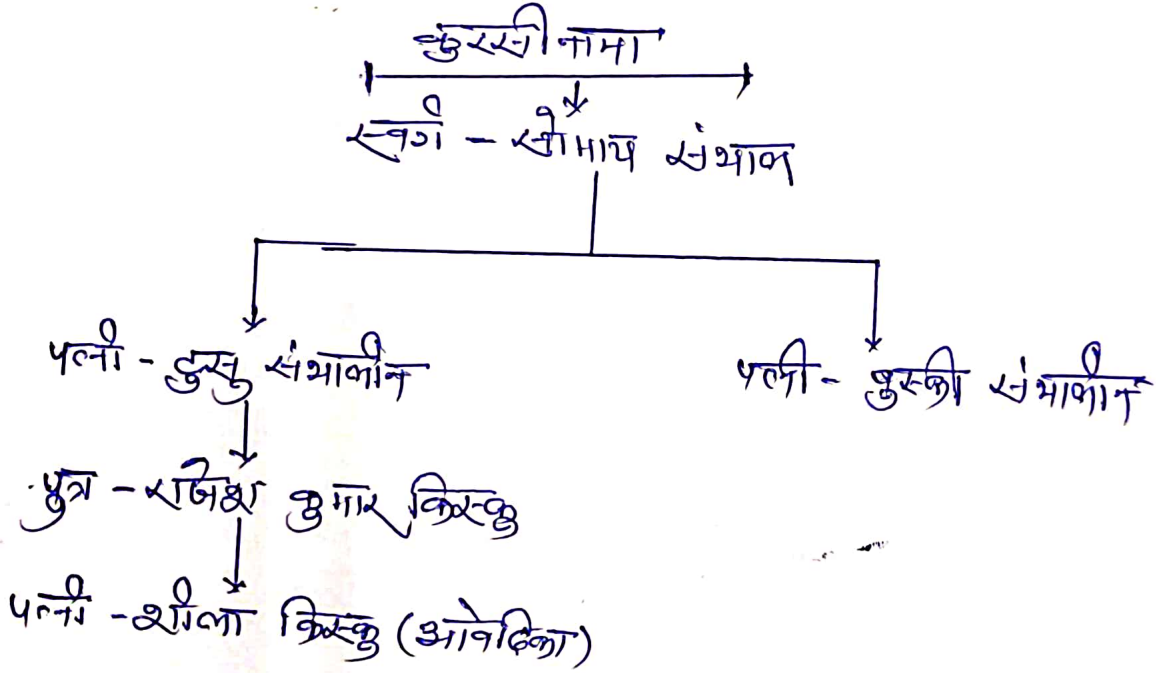 कुरसी नामा
स्वर्ग - सोमाय संथाल
पत्नी - टुसु संथालीन
पत्नी - बुस्की संथालीन
पुत्र - राजेश कुमार किस्कु
पत्नी - शीला किस्कु (आवेदिका)